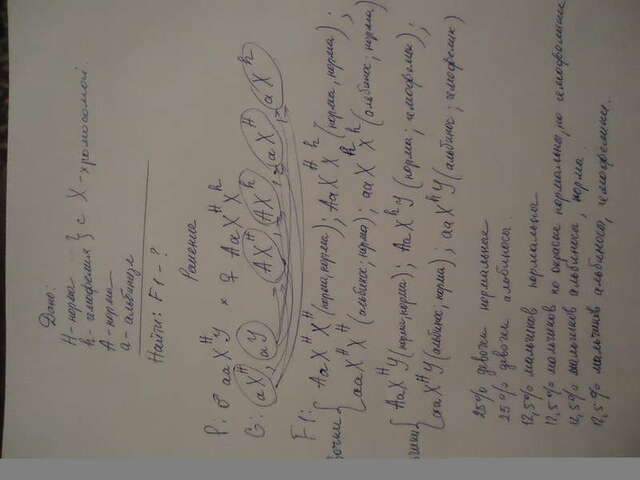 Дано:
H - норма
h - гемофилия } с X-хромосомой.
A - норма
a - альбинизм
Найти: F1 - ?
Решение
P: ♂ aaXᴴY × ♀ AaXᴴXʰ
G: aXᴴ, aY AXᴴ, AXʰ, aXᴴ, aXʰ
F1:
AaXᴴXᴴ (норма; норма); AaXᴴXʰ (норма; норма);
aaXᴴXᴴ (альбинос; норма); aaXᴴXʰ (альбинос; норма)
AaXᴴY (норма; норма); AaXʰY (норма; гемофилик);
aaXᴴY (альбинос; норма); aaXʰY (альбинос; гемофилик)
25% девочки нормальные
25% девочки альбиносы.
12,5% мальчиков нормальные
12,5% мальчиков по окраске нормальные, но гемофилики
12,5% мальчиков альбиносы, норма.
12,5% мальчиков альбиносы, гемофилики.